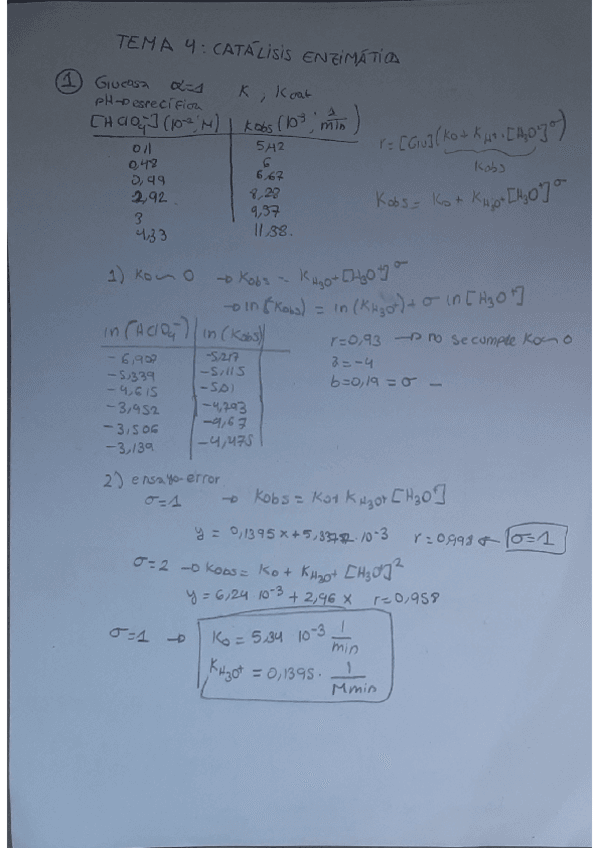 TEMA 4: CATÁLISIS ENZIMÁTICA
① Glucosa α=1 K, Kcat
pH→específica
[HClO4⁻] (10⁻², M) | Kobs (10⁻³, 1/min)
0,1 | 5,42
0,48 | 6
0,99 | 6,67
2,92 | 8,28
3 | 9,37
4,33 | 11,38
r = [Glu] (Ko + KH3O⁺ · [H3O⁺]^σ)
Kobs
Kobs = Ko + KH3O⁺ [H3O⁺]^σ
1) Ko ~ 0 → Kobs = KH3O⁺ [H3O⁺]^σ
→ ln (Kobs) = ln (KH3O⁺) + σ ln [H3O⁺]
ln [HClO4⁻] | ln (Kobs)
-6,908 | -5,217
-5,339 | -5,115
-4,615 | -5,01
-3,952 | -4,793
-3,506 | -4,67
-3,139 | -4,475
r=0,93 → no se cumple Ko ~ 0
a=-4
b=0,19 = σ -
2) ensayo-error
σ=1 → Kobs = Ko + KH3O⁺ [H3O⁺]
y = 0,1395 x + 10⁻³ r = 0,998 ← σ=1
σ=2 → Kobs = Ko + KH3O⁺ [H3O⁺]²
y = 6,24 10⁻³ + 2,96 x r=0,958
σ=1 → Ko = 5,34 10⁻³ 1/min
KH3O⁺ = 0,1395 · 1/Mmin